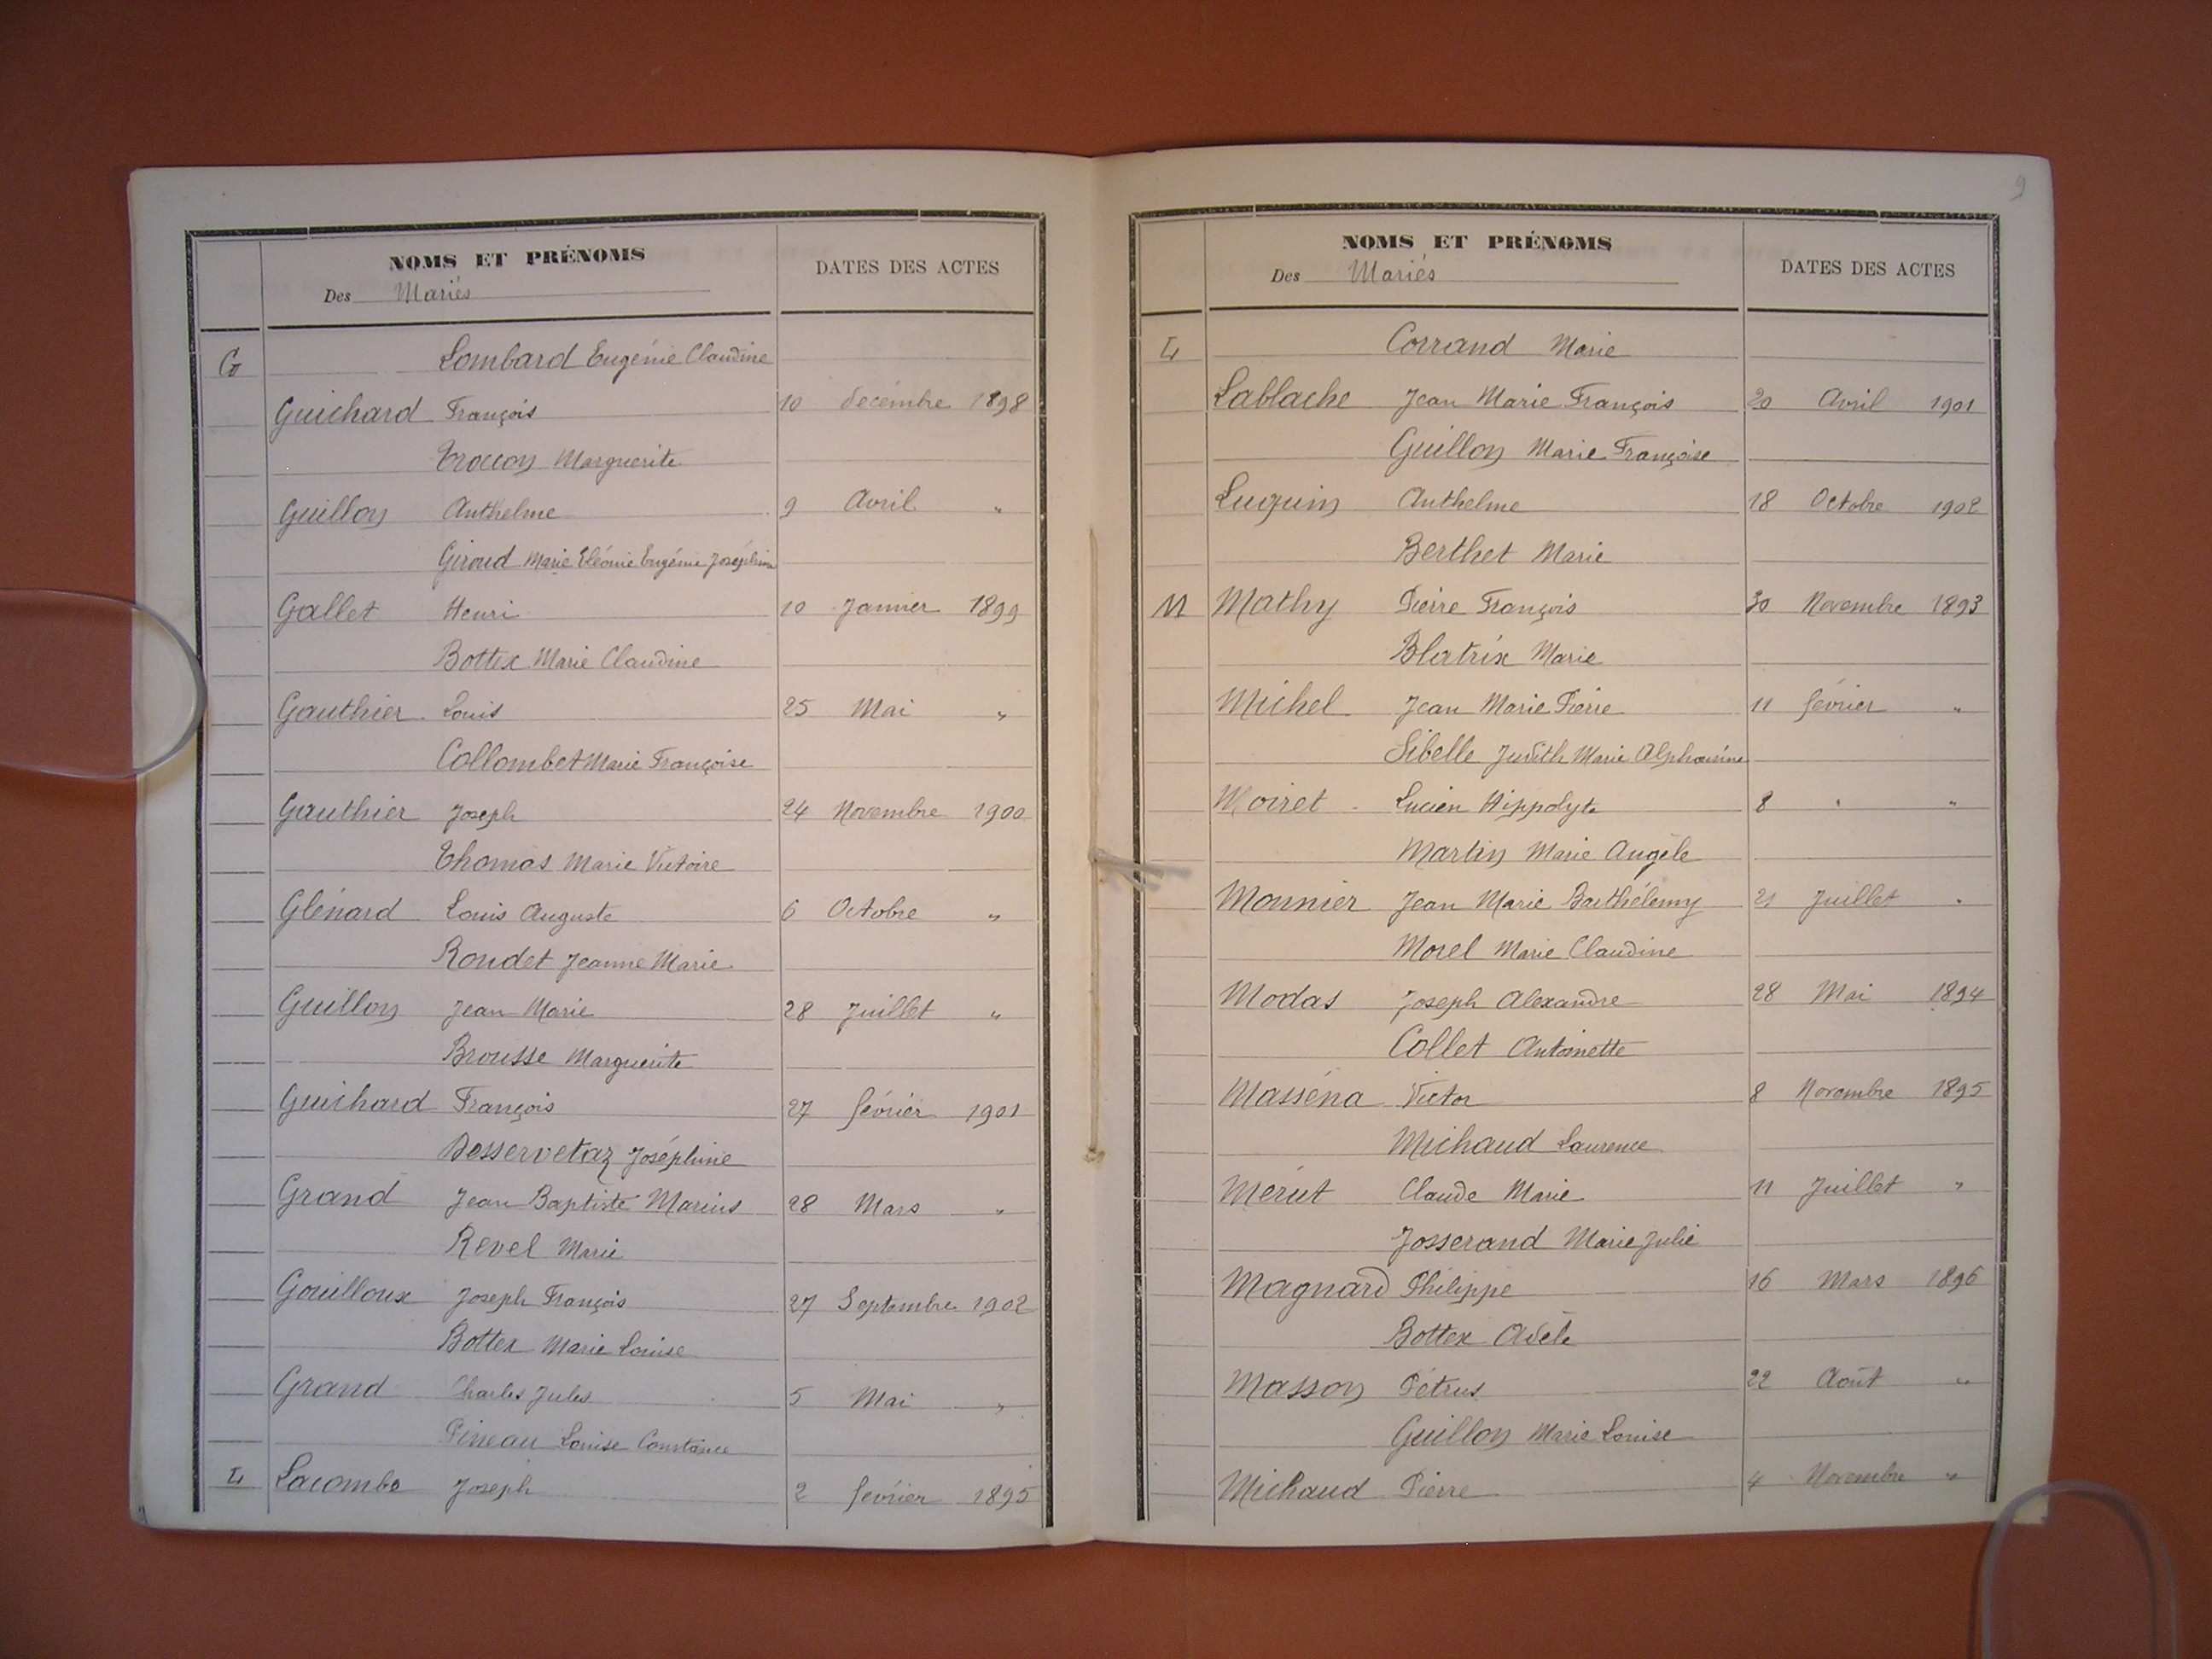 NOMS ET PRÉNOMS
Des Mariés
DATES DES ACTES
G Lombard Eugénie Claudine
Guichard François 10 décembre 1898
Marguerite
Guillon Anthelme 9 Avril "
Giroud Marie Eléonie Eugénie Joséphine
Gallet Henri 10 Janvier 1899
Bottex Marie Claudine
Gauthier Louis 25 Mai "
Collombet Marie Françoise
Gauthier Joseph 24 Novembre 1900
Thomas Marie Victoire
Glénard Louis Auguste 6 Octobre "
Roudet Jeanne Marie
Guillon Jean Marie 28 Juillet "
Brousse Marguerite
Guichard François 27 février 1901
Desservetaz Joséphine
Grand Jean Baptiste Marius 28 Mars "
Revel Marie
Gouilloux Joseph François 27 Septembre 1902
Bottex Marie Louise
Grand Charles Jules 5 Mai "
Pineau Louise Constance
L Lacombe Joseph 2 février 1895
9
NOMS ET PRÉNOMS
Des Mariés
DATES DES ACTES
L Corrand Marie
Lablache Jean Marie François 20 Avril 1901
Guillon Marie Françoise
Luguin Anthelme 18 Octobre 1902
Berthet Marie
M Mathy Pierre François 30 Novembre 1893
Blatrix Marie
Michel Jean Marie Pierre 11 février "
Sibelle Judith Marie Alphonsine
Moiret Lucien Hippolyte 8 " "
Martin Marie Angèle
Monnier Jean Marie Barthélemy 21 Juillet "
Morel Marie Claudine
Modas Joseph Alexandre 28 Mai 1894
Collet Antoinette
Masséna Victor 8 Novembre 1895
Michaud Laurence
Mérut Claude Marie 11 Juillet "
Josserand Marie Julie
Magnard Philippe 16 Mars 1896
Bottex Adèle
Masson Pétrus 22 Août "
Guillon Marie Louise
Michaud Pierre 4 Novembre "